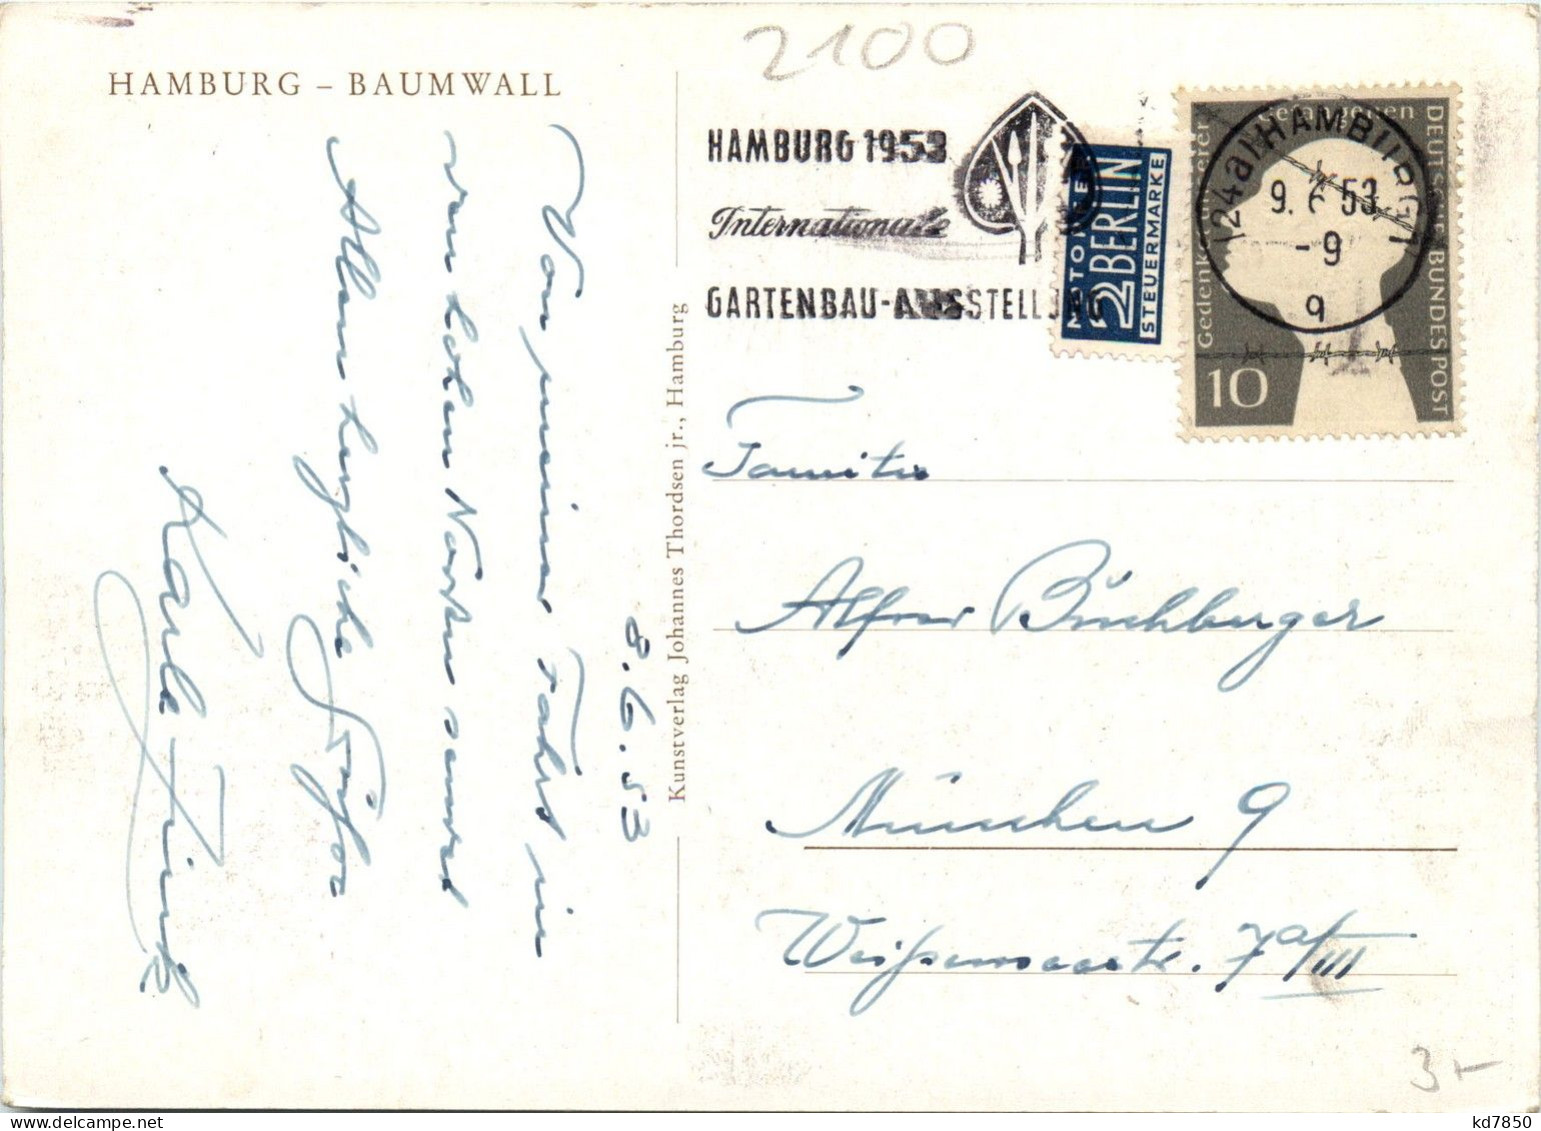 2100
HAMBURG – BAUMWALL
8.6.53
Von meiner Fahrt in
den hohen Norden send
Allen herzliche Grüße
Karla Fink
Kunstverlag Johannes Thordsen jr., Hamburg
HAMBURG 1953
Internationale
GARTENBAU-AUSSTELLUNG
NOTOPFER
2 BERLIN
STEUERMARKE
Gedenket unserer Gefangenen
DEUTSCHE BUNDESPOST
10
(24a) HAMBURG 1
9.6.53
-9
q
Familie
Alfred Buchberger
München 9
Weißenseestr. 7a/III
3,-
kd7850